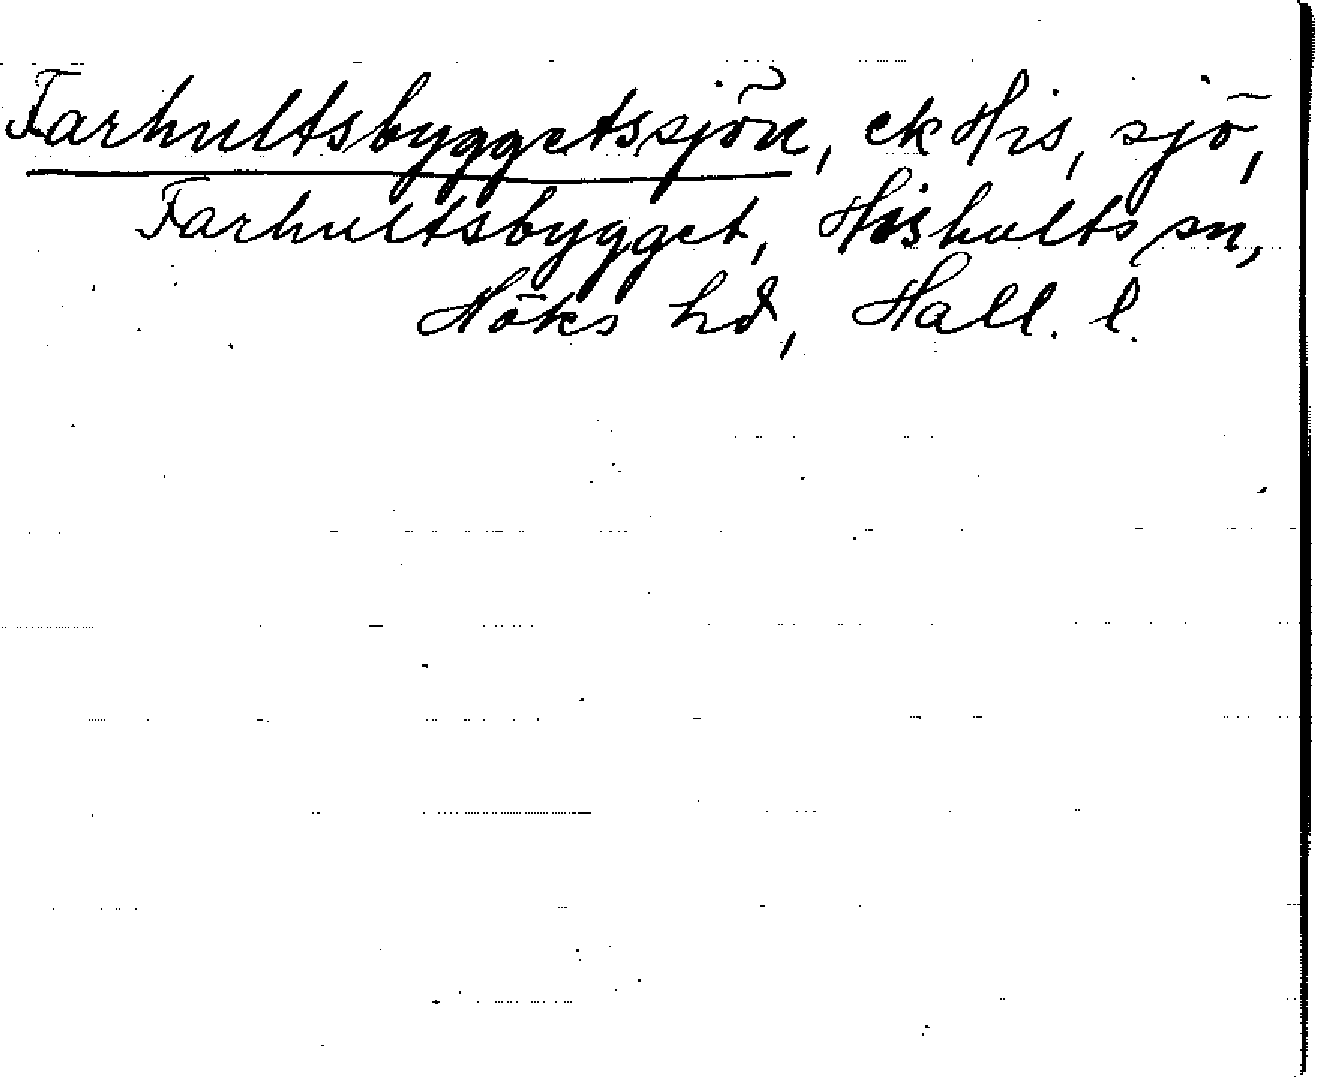 Farhultsbyggetssjön, ek His, sjö,
Farhultsbygget, Hishults sn,
Höks hd, Hall. l.